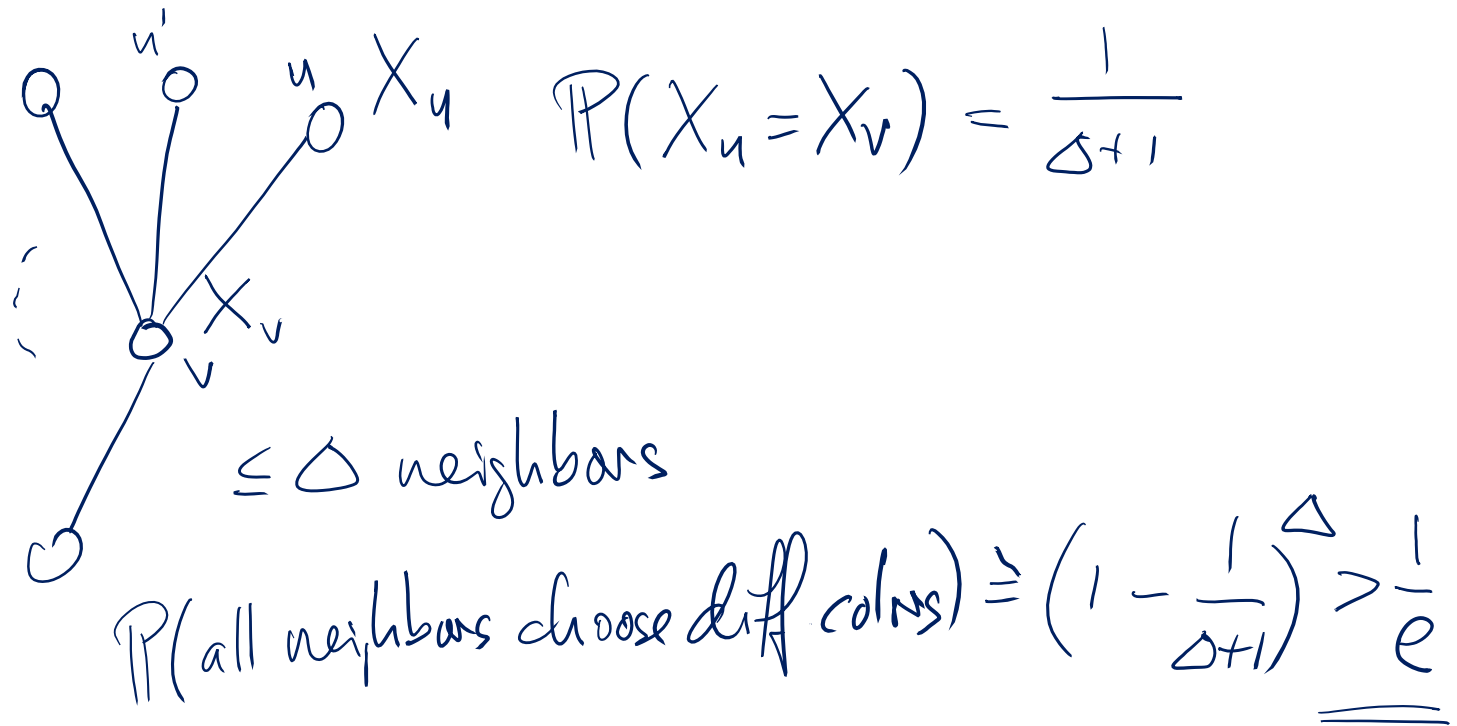 u'
u X_u P(X_u = X_v) = 1/(Δ+1)
X_v
v
≤ Δ neighbors
P(all neighbors choose diff colors) ≥ (1 - 1/(Δ+1))^Δ > 1/e